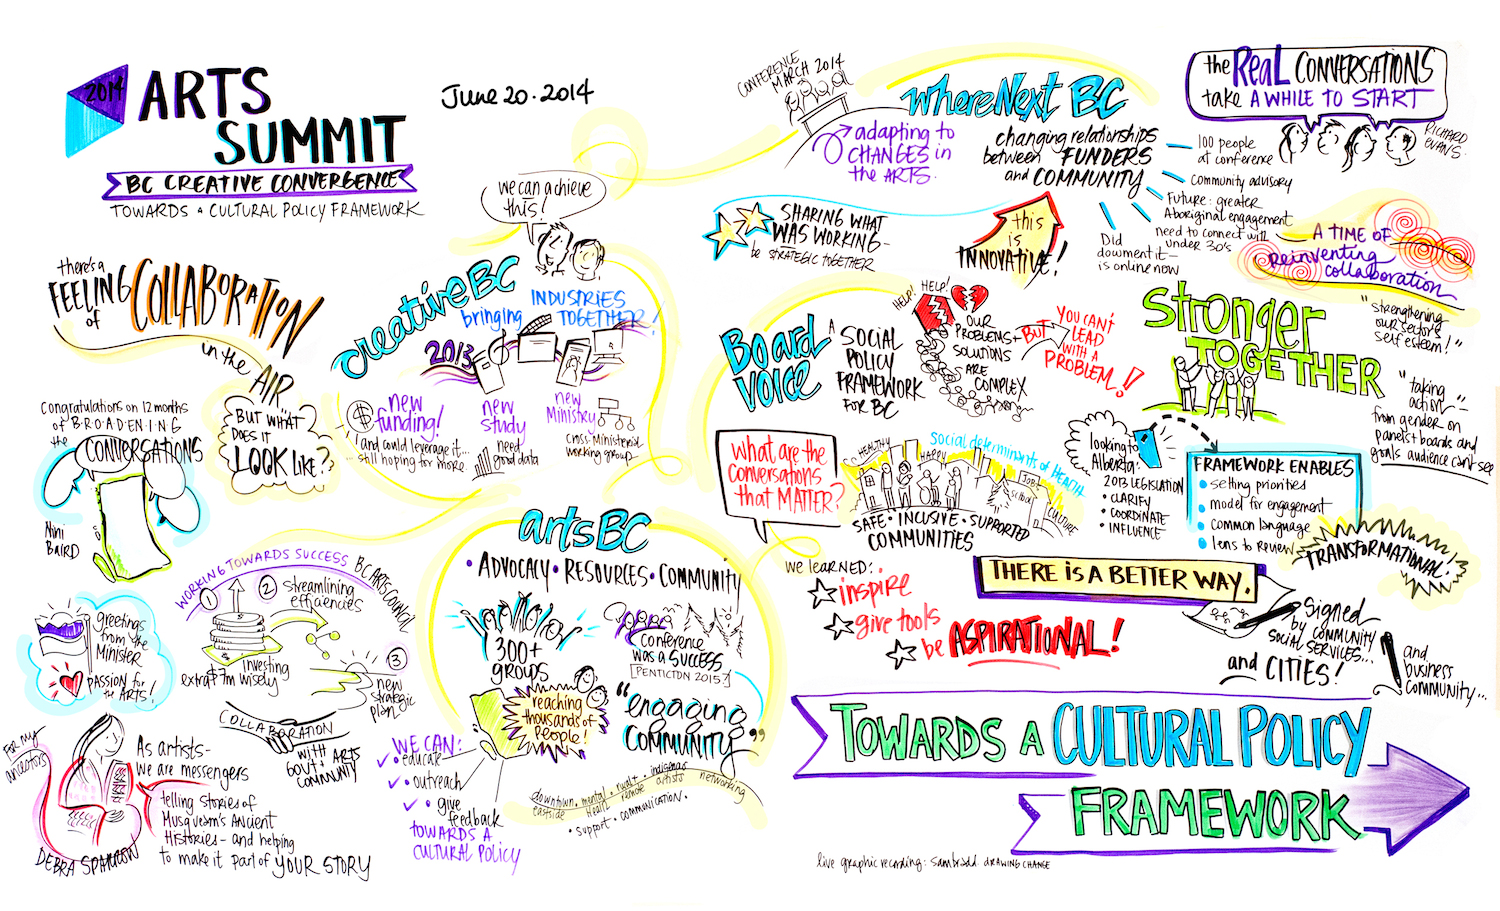 2014
ARTS
SUMMIT
BC CREATIVE CONVERGENCE
TOWARDS a CULTURAL POLICY FRAMEWORK
June 20 · 2014
there's a
FEELING
of
COLLABORATION
in the
AIR
BUT WHAT
DOES IT
LOOK LIKE?
Congratulations on 12 months
of B·R·O·A·D·E·N·I·N·G
the
CONVERSATIONS
Nini
BAIRD
Greetings
from the
Minister
PASSION for
the ARTS!
FOR my
ancestors
As artists–
we are messengers
telling stories of
Musqueam's ANCIENT
HISTORIES – and helping
to make it part of YOUR STORY
DEBRA SPARROW
WORKING TOWARDS SUCCESS BC ARTS COUNCIL
1
2
streamlining
efficiencies
investing
extra $7m wisely
3
new
strategic
plan
COLLABORATION
WITH
GOV'T + ARTS
COMMUNITY
we can achieve
this!
creative BC
bringing
INDUSTRIES
TOGETHER!
2013
$
new
funding!
and could leverage it...
...still hoping for more
new
study
need
good data
new
Ministry
cross-Ministerial
working group
artsBC
· ADVOCACY · RESOURCES · COMMUNITY
300+
groups
reaching
thousands of
People!
Conference
was a SUCCESS
[PENTICTON 2015]
"engaging
COMMUNITY"
WE CAN:
educate
outreach
give
feedback
TOWARDS A
CULTURAL POLICY
downtown eastside · mental health · rural + remote · indigenous artists · networking
· support · communication ·
CONFERENCE
MARCH 2014
WhereNext BC
adapting to
CHANGES in
the ARTS.
changing relationships
between FUNDERS
and COMMUNITY
100 people
at conference
Community advisory
Future: greater
Aboriginal engagement
need to connect with
under 30's
Did
document it –
is online now
SHARING WHAT
WAS WORKING –
be STRATEGIC TOGETHER
this
is
INNOVATIVE!
the REAL CONVERSATIONS
take A WHILE TO START
RICHARD
EVANS
A TIME OF
Reinventing
collaboration
Board
VOICE
A
SOCIAL
POLICY
FRAMEWORK
FOR BC
HELP! HELP!
OUR
PROBLEMS +
SOLUTIONS
ARE
COMPLEX
BUT
YOU CAN'T
LEAD
WITH A
PROBLEM!!
Stronger
TOGETHER
"strengthening
our sector's
self esteem!"
"taking
action" –
from gender on
panels + boards and
goals audience can't see
What are the
conversations
that MATTER?
HEALTHY
HAPPY
Social determinants of HEALTH
JOB
school
CULTURE
SAFE · INCLUSIVE · SUPPORTED
COMMUNITIES
looking to
Alberta:
2013 LEGISLATION
· CLARIFY
· COORDINATE
· INFLUENCE
FRAMEWORK ENABLES
setting priorities
model for engagement
common language
lens to review
TRANSFORMATIONAL!
we learned:
inspire
give tools
be ASPIRATIONAL!
THERE IS A BETTER WAY.
Signed
by COMMUNITY
SOCIAL SERVICES...
and CITIES!
and
business
COMMUNITY...
TOWARDS A CULTURAL POLICY
FRAMEWORK
live graphic recording: Sam Bradd DRAWING CHANGE